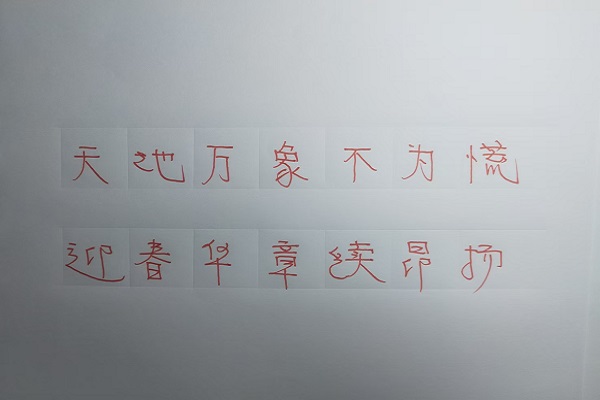 天地万象不为慌
迎春华章续昂扬